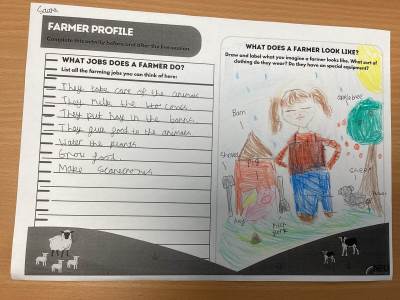 FARMER PROFILE
Complete this activity before and after the live session
WHAT JOBS DOES A FARMER DO?
List all the farming jobs you can think of here:
They take care of the animals
They milk the cows
They put hay in the barns.
They give food to the animals
Water the plants
Grow food.
Make Scarecrows
WHAT DOES A FARMER LOOK LIKE?
Draw and label what you imagine a farmer looks like. What sort of clothing do they wear? Do they have any special equipment?
apple tree
Barn
Shovel
Sheep
Hay
Pitch
fork